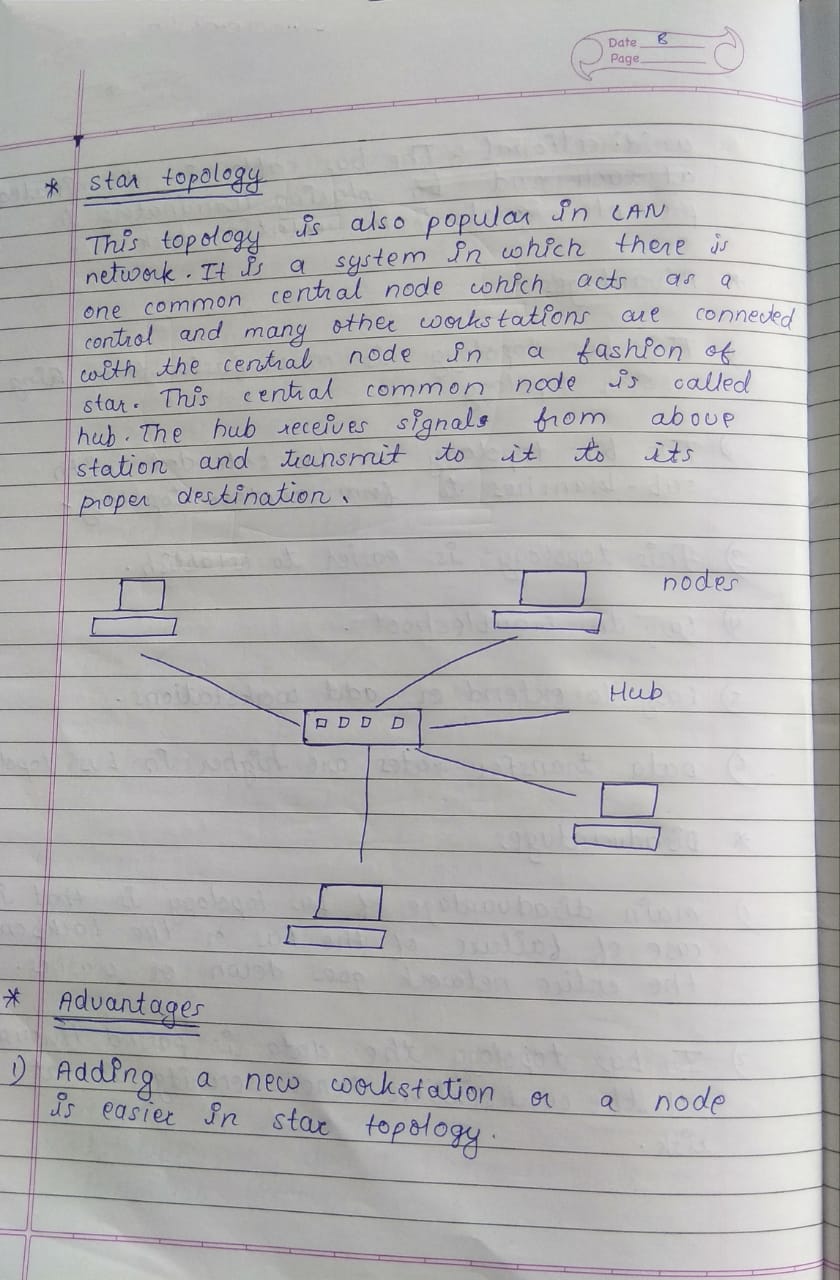 Date B
Page
* star topology
This topology is also popular in LAN
network. It is a system in which there is
one common central node which acts as a
control and many other workstations are conneded
with the central node in a fashion of
star. This central common node is called
hub. The hub receives signals from above
station and transmit to it to its
proper destination.
nodes
Hub
* Advantages
1) Adding a new workstation or a node
is easier in star topology.